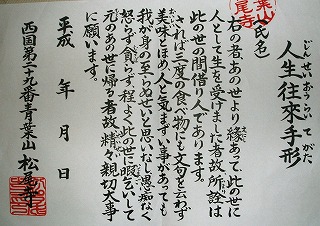 人生往来手形
じんせいおうらいてがた
(氏名)
右の者、あの世より縁あって、此の世に
人として生を受けました者故、所詮は
此の世の間借り人であります。
されば三度の食べ物にも文句を云わず
美味とほめ人と気まずい事があっても
我が身の至らぬせいと思いなし愚痴なく
怒らず貪らず、程よく此の世に暇乞いして
元のあの世に帰る者故、精々親切大事
に願います。
平成 年 月 日
西国第二十九番青葉山 松尾寺
葉山
尾寺